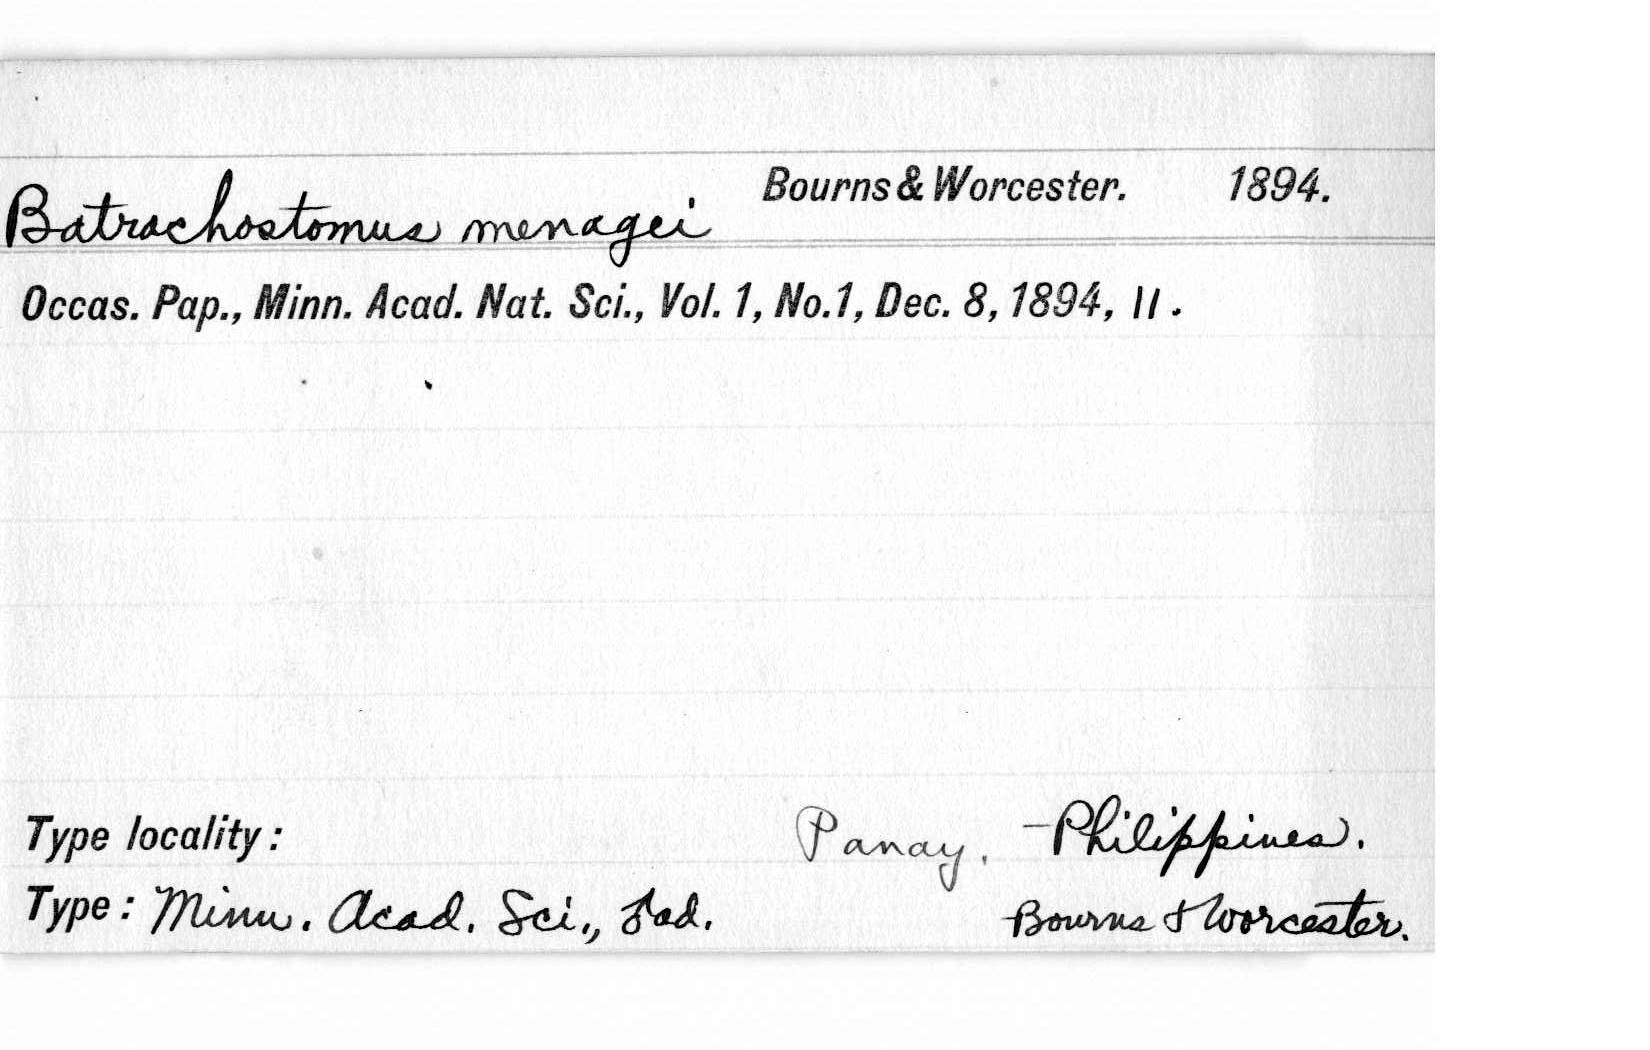 Batrachostomus menagei Bourns & Worcester. 1894.
Occas. Pap., Minn. Acad. Nat. Sci., Vol. 1, No.1, Dec. 8, 1894, 11.
Type locality: Panay. - Philippines.
Type: Minn. Acad. Sci., ♂ad. Bourns & Worcester.